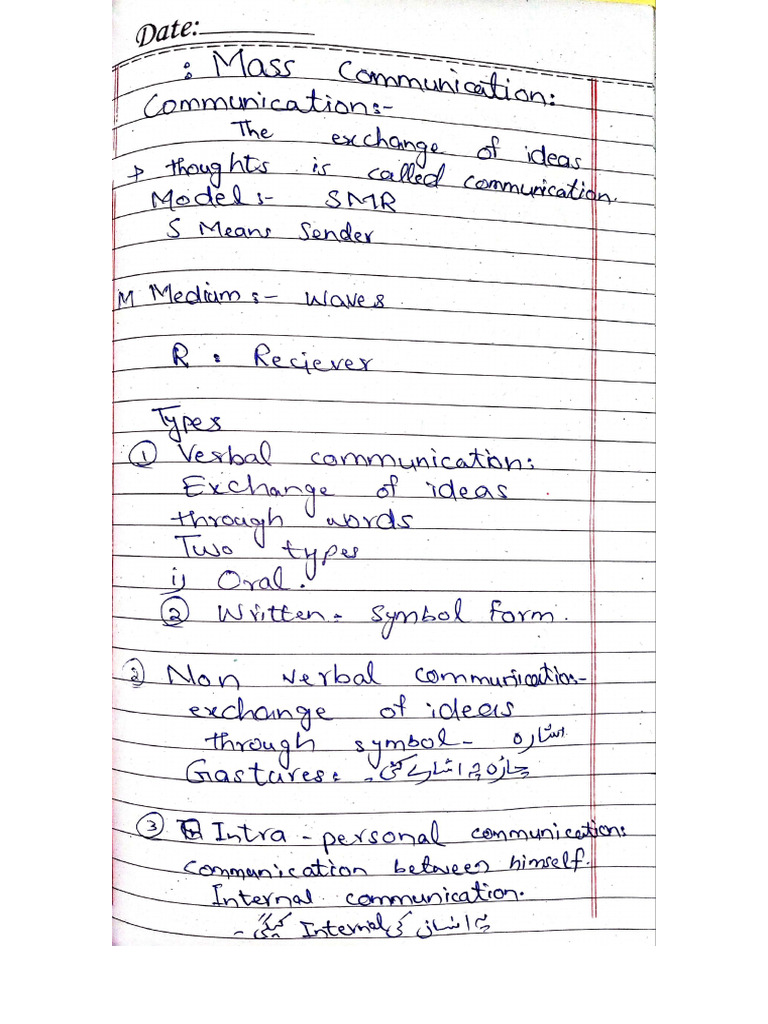 Date:
: Mass Communication:
Communication:-
The exchange of ideas
+ thoughts is called communication.
Model:- SMR
S Means Sender
M Medium:- waves
R : Reciever
Types
① Verbal communication:
Exchange of ideas
through words
Two types
i) Oral.
② Written - Symbol form.
② Non verbal communication-
exchange of ideas
through symbol- اشاره
Gastures: په اشارے کی۔
③ Intra-personal communication:
Communication between himself.
Internal communication.
په انسان کی Internal کیگی۔